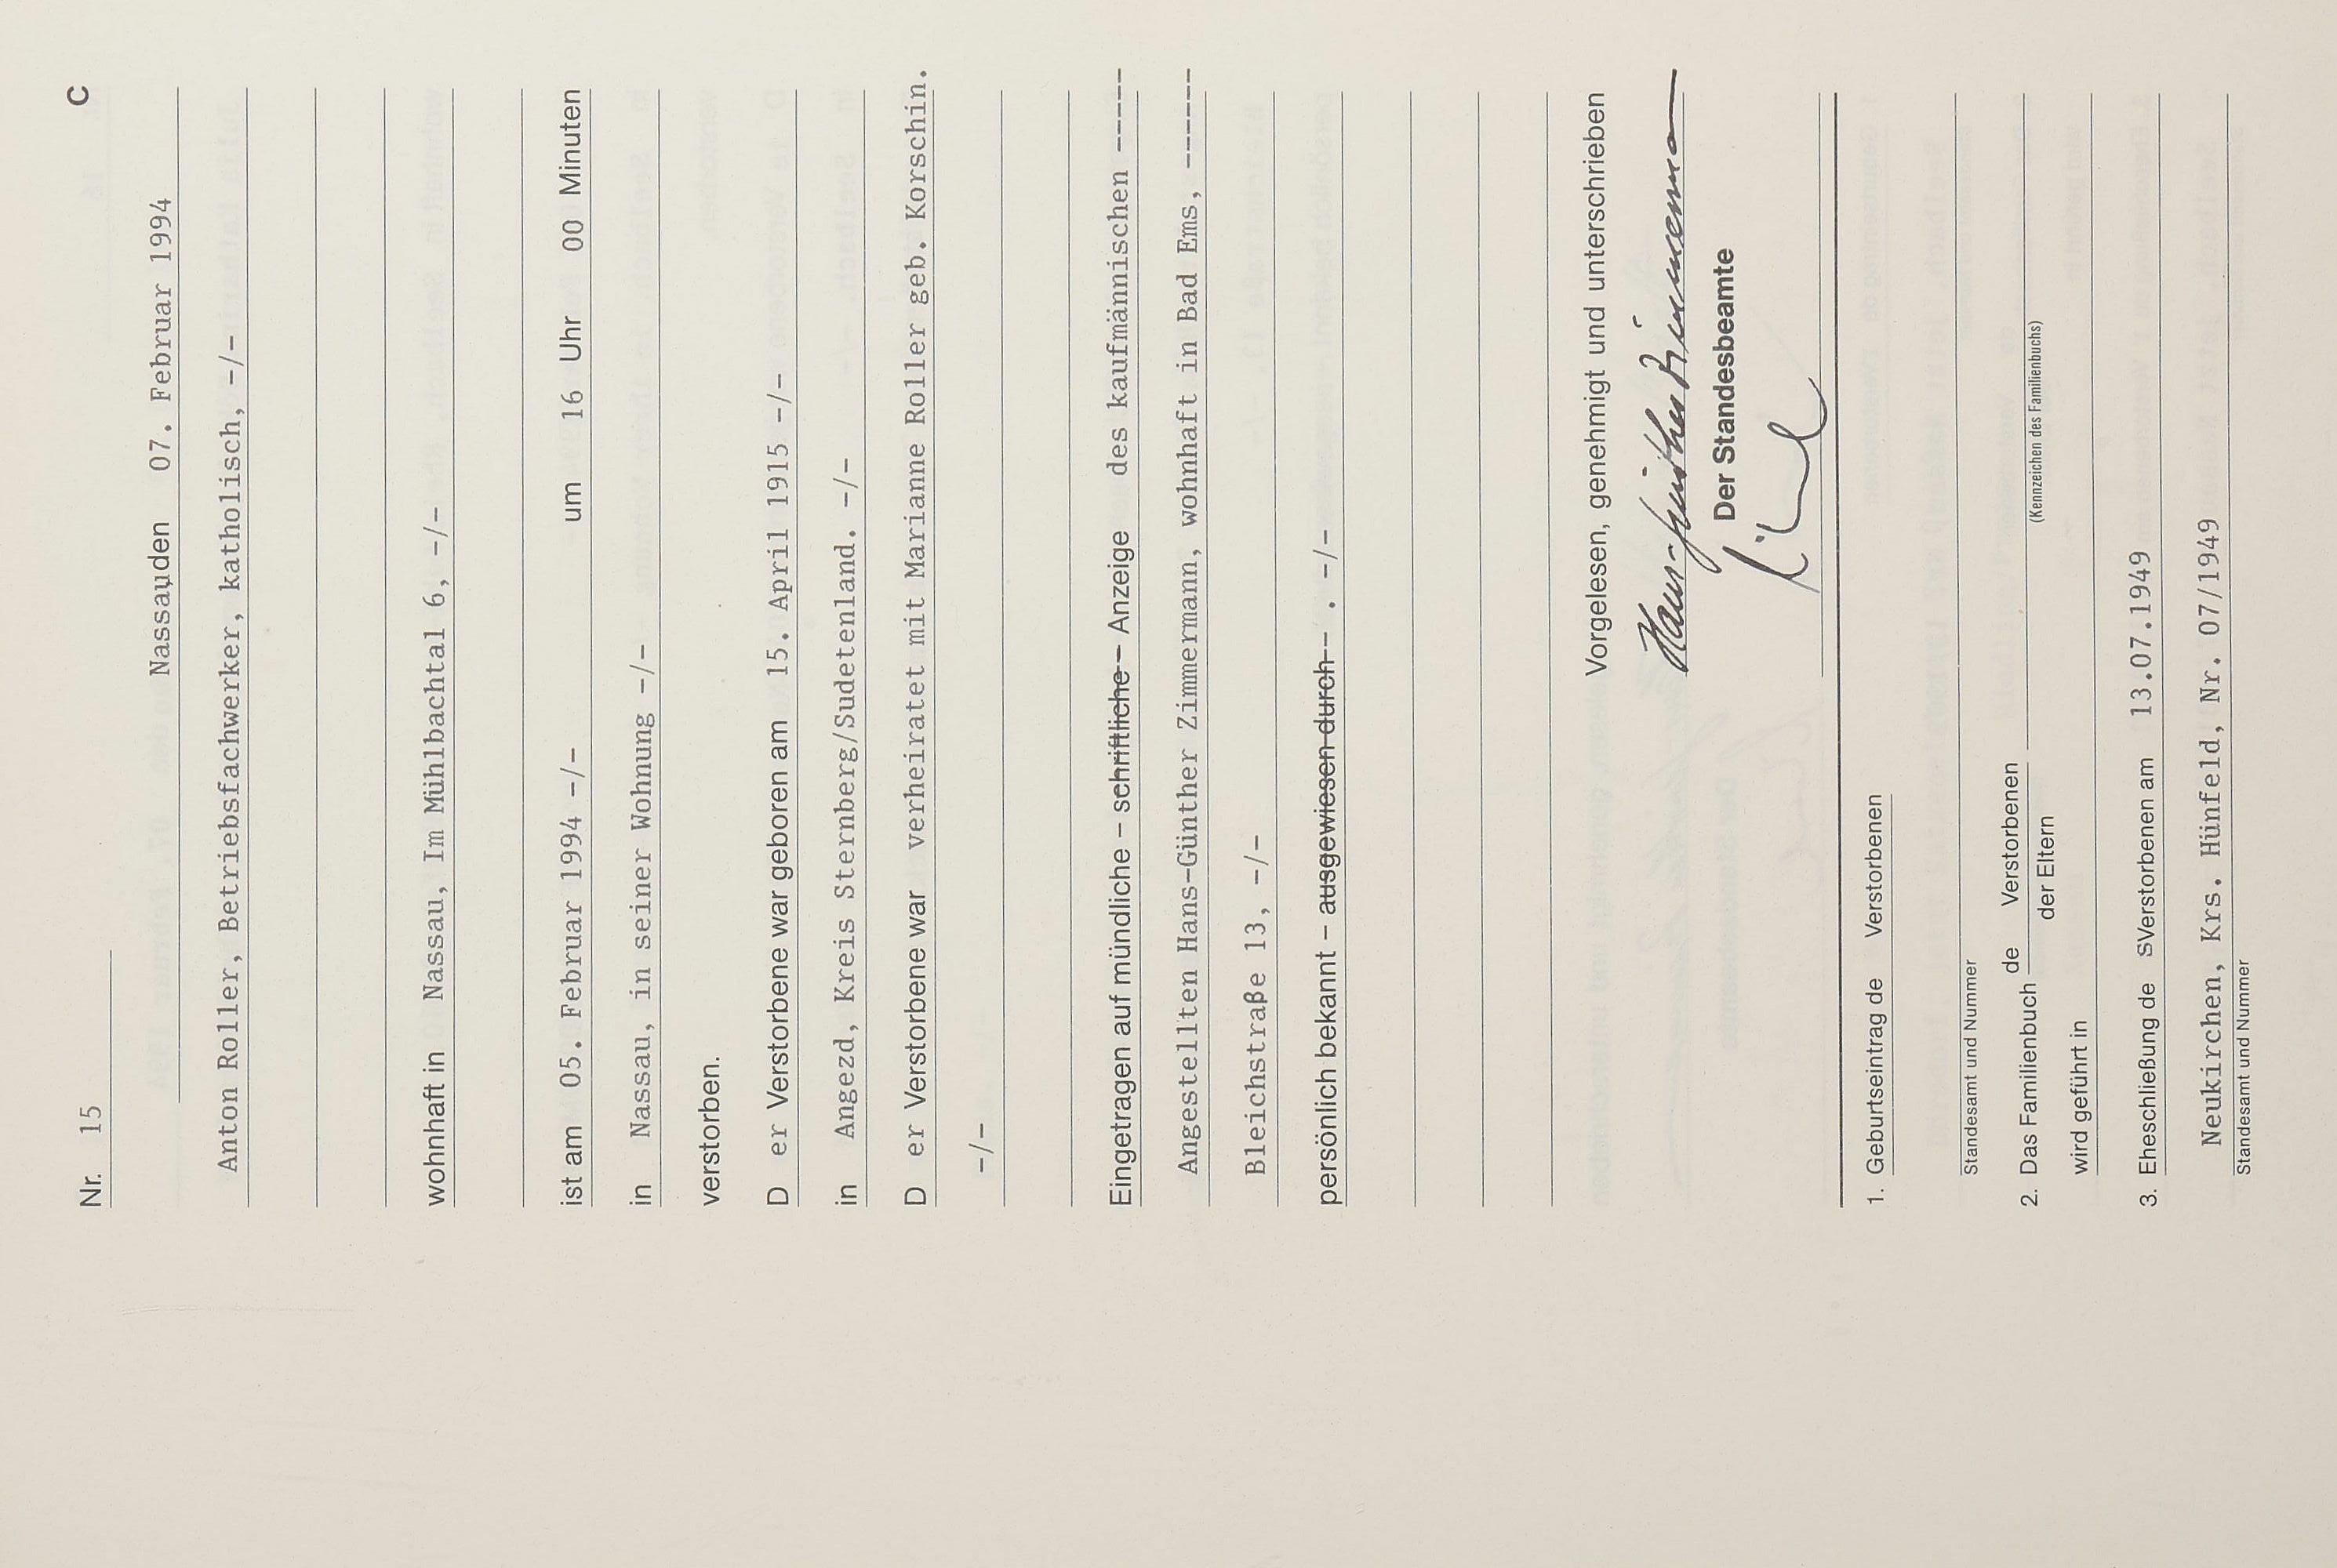 Nr. 15 C
Nassau den 07. Februar 1994
Anton Roller, Betriebsfachwerker, katholisch, -/-
wohnhaft in Nassau, Im Mühlbachtal 6, -/-
ist am 05. Februar 1994 -/- um 16 Uhr 00 Minuten
in Nassau, in seiner Wohnung -/-
verstorben.
D er Verstorbene war geboren am 15. April 1915 -/-
in Angezd, Kreis Sternberg/Sudetenland. -/-
D er Verstorbene war verheiratet mit Marianne Roller geb. Korschin.
-/-
Eingetragen auf mündliche – schriftliche – Anzeige des kaufmännischen ------
Angestellten Hans-Günther Zimmermann, wohnhaft in Bad Ems, ------
Bleichstraße 13, -/-
persönlich bekannt – ausgewiesen durch -- . -/-
Vorgelesen, genehmigt und unterschrieben
Hans-Günther Zimmermann
Der Standesbeamte
1. Geburtseintrag de Verstorbenen
Standesamt und Nummer
2. Das Familienbuch de Verstorbenen
der Eltern
(Kennzeichen des Familienbuchs)
wird geführt in
3. Eheschließung de s Verstorbenen am 13.07.1949
Neukirchen, Krs. Hünfeld, Nr. 07/1949
Standesamt und Nummer